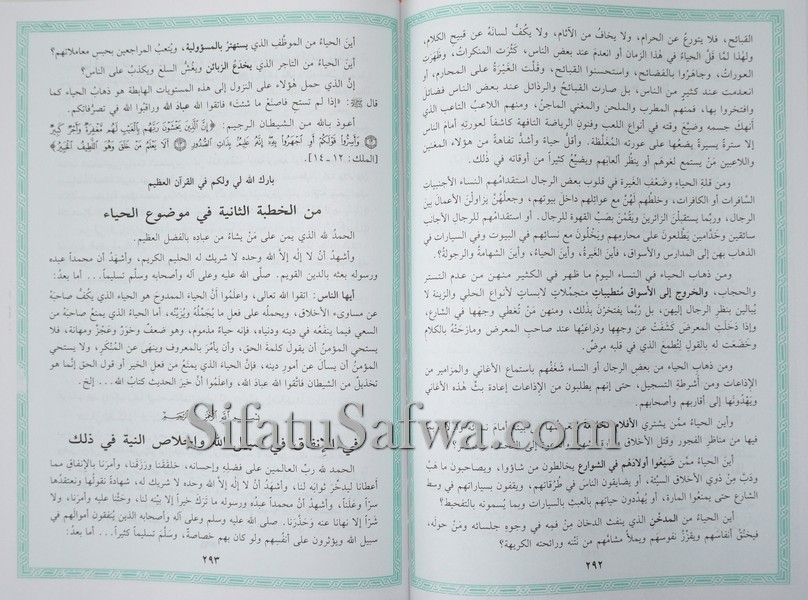 القبائح، فلا يتورعُ عن الحرام، ولا يخافُ من الآثام، ولا يكفُّ لسانَهُ عن قبيح الكلام،
ولهذا لمَّا قلَّ الحياءُ في هذا الزمان أو انعدمَ عند بعض الناس، كثُرَت المنكراتُ، وظهَرَت
العوراتُ، وجاهَرُوا بالفضائح، واستحسنوا القبائح، وقلَّت الغَيْرَةُ على المحارم، أو
انعدمت عند كثيرٍ من الناس، بل صارت القبائحُ والرذائل عند بعض الناس فضائل
وافتخروا بها، فمنهم المطرب والملحن والمغني الماجنُ، ومنهم اللاعبُ التاعب الذي
أنهكَ جسمه وضيَّع وقته في أنواع اللعب وفنونِ الرياضة التافهة كاشفًا لعورتِهِ أمامَ الناس
إلا سترةً يسيرةً يضعُها على عورته المُغلَّظة. وأقلُّ حياءً وأشدُّ تفاهةً من هؤلاء المغنين
واللاعبين مَنْ يستمع لغوَهُم أو ينظُر ألعابَهم ويضيِّعُ كثيراً من أوقاته في ذلك.
ومن قلةِ الحياءِ وضَعْفِ الغَيرة في قلوب بعض الرجال استقدامُهم النساء الأجنبيات
السَّافرات أو الكافرات، وخلطُهم لَهُنَّ مع عوائلهم داخل بيوتهم، وجعلُهُنَّ يزاولْنَ الأعمالَ بين
الرجال، وربَّما يستقبلْنَ الزائرينَ ويَقُمْنَ بصَبِّ القهوة للرجال. أو استقدامُهم للرجالِ الأجانبِ
سائقين وخدَّامين يطَّلعونَ على محارمِهم ويخْلُونَ مع نسائِهم في البيوت وفي السيارات في
الذهابِ بهن إلى المدارس والأسواق، فأينَ الغيرةُ، وأينَ الحياءُ، وأينَ الشهامةُ والرجولةُ؟.
ومن ذهاب الحياءِ في النساء اليومَ ما ظهر في الكثير منهن من عدم التستر
والحجاب، والخروج إلى الأسواق مُتطيباتٍ متجمِّلات لابساتٍ لأنواع الحلي والزينة لا
يُبالين بنظرِ الرجال إليهن، بل ربَّما يفتخرْنَ بذلك، ومنهن مَنْ تُغطي وجهها في الشارع،
وإذا دخلَتِ المعرضَ كَشَفَتْ عن وجهها وذراعَيْها عند صاحبِ المعرض ومازحَتْهُ بالكلام
وخَضَعت له بالقولِ لتُطمِعَ الذي في قلبه مرضٌ.
ومن ذهابِ الحياء من بعض الرجال أو النساء شَغَفُهم باستماع الأغاني والمزامير من
الإذاعات ومن أشرطةِ التسجيل، حتى إنهم يطلبون من الإذاعات إعادة بثِّ هذه الأغاني
ويَهْدُونَها إلى أقاربهم وأصحابهم.
وأين الحياءُ ممَّن يشتري الأفلام
فيها من مناظر الفجور وقتل الأخلاق
أين الحياءُ ممَّن ضَيَّعُوا أولادَهم في الشوارع يخالطون من شاؤوا، ويصاحبون ما هَبَّ
ودَبَّ مِنْ ذوي الأخلاق السيِّئة، أو يضايقون الناسَ في طُرُقاتِهم، ويقفون بسياراتِهم في وسط
الشارع حتى يمنعُوا المارة، أو يُهدِّدون حياتَهم بالعبثِ بالسيارات وبما يُسمونه بالتفحيط؟
أين الحياءُ من المدخِّن الذي ينفثُ الدخانَ مِنْ فمِه في وجوهِ جلسائه ومَنْ حولَه،
فيخنُق أنفاسَهم ويقزِّزُ نفوسَهم ويملأُ مشامَّهم من نَتْنِه ورائحتِه الكريهة؟
٢٩٢
أينَ الحياءُ من الموظَّفِ الذي يستهترُ بالمسؤولية، ويُتعبُ المراجعين بحبسِ معاملاتهم؟
أينَ الحياءُ من التاجر الذي يخدَعُ الزبائن ويغُشُّ السلعَ ويكذبُ على الناس؟
إنَّ الذي حمل هؤلاء على النزول إلى هذه المستويات الهابطة هو ذهابُ الحياء كما
قال ﷺ: إذا لم تستحِ فاصنَعْ ما شئت فاتقوا الله عبادَ الله وراقبُوا الله في تصرُّفاتكم.
أعوذ بالله من الشيطان الرجيم: ﴿إِنَّ الَّذِينَ يَخْشَوْنَ رَبَّهُم بِالْغَيْبِ لَهُم مَّغْفِرَةٌ وَأَجْرٌ كَبِيرٌ
﴿١٢﴾ وَأَسِرُّوا قَوْلَكُمْ أَوِ اجْهَرُوا بِهِ إِنَّهُ عَلِيمٌ بِذَاتِ الصُّدُورِ ﴿١٣﴾ أَلَا يَعْلَمُ مَنْ خَلَقَ وَهُوَ اللَّطِيفُ الْخَبِيرُ﴾
[الملك: ١٢ - ١٤].
بارك الله لي ولكم في القرآن العظيم
من الخطبة الثانية في موضوع الحياء
الحمدُ لله الذي يمن على مَنْ يشاءُ من عبادِه بالفضل العظيم.
وأشهدُ أنْ لا إلَهَ إلاَّ الله وحده لا شريكَ له الحليم الكريم، وأشهدُ أن محمداً عبده
ورسوله بعثَه بالدين القويم. صلَّى الله عليه وعلى آله وأصحابه وسلَّم تسليماً... أما بعدُ:
أيها الناسُ: اتقوا الله تعالى، واعلمُوا أنَّ الحياءَ الممدوحَ هو الحياء الذي يكُفُّ صاحبَهُ
عن مساوىء الأخلاق، ويحملُه على فعل ما يُجَمِّلُهُ ويُزَيِّنُه، أما الحياءُ الذي يمنعُ صاحبَه من
السعي فيما ينفَعُه في دينِه ودنياه، فإنه حياءٌ مذموم، وهو ضعفٌ وخَوَرٌ وعَجْزٌ ومهانة، فلا
يستحي المؤمنُ أن يقولَ كلمة الحق، وأن يأمُرَ بالمعروف وينهى عن المُنْكَرِ، ولا يستحي
المؤمنُ أن يسألَ عن أمورِ دينه، فإنَّ الحياءَ الذي يمنعُ من فعل الخيرِ أو قول الحق إنَّما هو
تخذيلٌ من الشيطان فاتَّقوا الله عبادَ الله، واعلَمُوا أنَّ خيرَ الحديث كتابُ الله... إلخ.
في الإنفاق في سبيل الله وإخلاص النية في ذلك
الحمد لله ربِّ العالمين على فضلِه وإحسانِه، خلَقَنا ورَزَقَنا، وأمرَنا بالإنفاق مما
أعطانا ليدَّخرَ ثوابَه لنا، وأشهدُ أنْ لا إلَهَ إلاَّ الله وحدَه لا شريكَ له، شهادةً نقولُها ونعتقدُها
سرّاً وعَلَناً، وأشهدُ أنَّ محمداً عبدُه ورسوله ما تَرَكَ خيراً إلا بيَّنه لنا، وحَثَّنا عليه وأمرَنا، ولا
شَرّاً إلا نهانا عنه وحَذَّرَنا. صلى الله عليه وسلم وعلى آله وأصحابه الذين يُنْفقُون أموالَهم في
سبيل الله ويؤثِرُون على أنفُسِهم ولو كان بهم خَصاصةٌ، وسَلَّم تسليماً كثيراً... أما بعدُ:
٢٩٣
SifatuSafwa.com